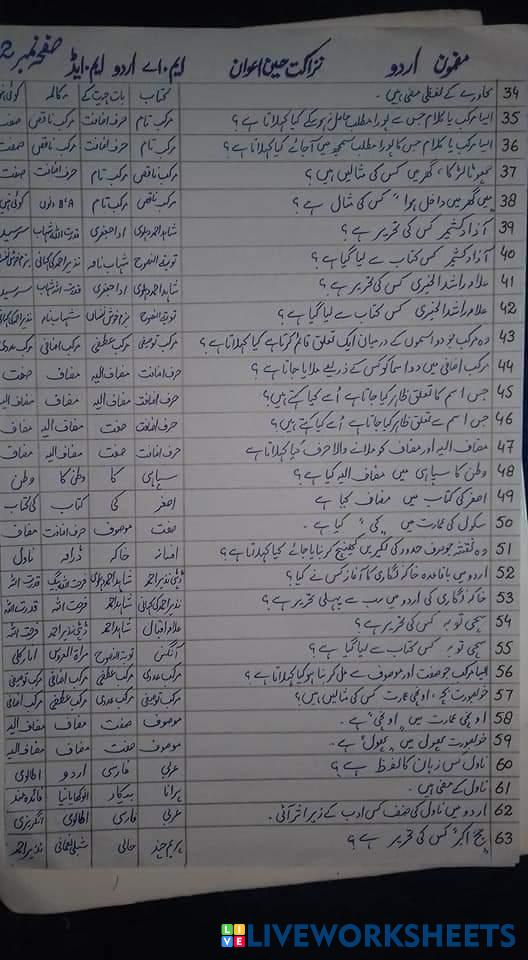 مضمون اردو نزاکت حسین اعوان ایم۔اے اردو ایم۔ایڈ صفحہ نمبر 2
34 محاورے کے لفظی معنی ہیں۔ کتاب بات چیت کے مکالمہ
35 ایسا مرکب یا کلام جس سے پورا مطلب حاصل نہ ہو سکے کیا کہلاتا ہے؟ مرکب تام حرف اضافت مرکب ناقص صفت
36 ایسا مرکب یا کلام جس کا پورا مطلب سمجھ میں آجائے کیا کہلاتا ہے؟ مرکب تام حرف اضافت مرکب ناقص صفت
37 گھر میں کس کی مثالیں ہیں؟ مرکب ناقص مرکب تام حرف اضافت صفت
38 میں گھر میں داخل ہوا" کس کی مثال ہے؟ مرکب ناقص مرکب تام A،B دونوں
39 آزاد کشمیر کس کی تحریر ہے؟ شاہد احمد دہلوی ادا جعفری قدرت اللہ شہاب سرسید
40 آزاد کشمیر کس کتاب سے لیا گیا ہے؟ توبۃ النصوح شہاب نامہ نذیر احمد کی کہانی
41 علامہ راشد الخیری کس کی تحریر ہے؟ شاہد احمد دہلوی ادا جعفری قدرت اللہ شہاب سرسید
42 علامہ راشد الخیری کس کتاب سے لیا گیا ہے؟ توبۃ النصوح بزم خوش نفساں شہاب نامہ نذیر احمد کی کہانی
43 وہ مرکب جو دو اسموں کے درمیان ایک تعلق قائم کرتا ہے کیا کہلاتا ہے؟ مرکب توصیفی مرکب عطفی مرکب اضافی مرکب عددی
44 مرکب اضافی میں دو اسما کو کس کے ذریعے ملایا جاتا ہے؟ حرف اضافت مضاف الیہ مضاف صفت
45 جس اسم کا تعلق ظاہر کیا جاتا ہے اُسے کیا کہتے ہیں؟ حرف اضافت مضاف الیہ مضاف مضاف الیہ
46 جس اسم سے تعلق ظاہر کیا جاتا ہے اُسے کیا کہتے ہیں؟ حرف اضافت صفت مضاف الیہ مضاف
47 مضاف الیہ اور مضاف کو ملانے والا حرف کیا کہلاتا ہے حرف اضافت صفت مضاف الیہ مضاف
48 وطن کا سپاہی میں مضاف الیہ کیا ہے؟ سپاہی کا وطن کا وطن
49 اصغر کی کتاب میں مضاف کیا ہے اصغر کی کتاب کی کتاب
50 سکول کی عمارت میں "کی" کیا ہے۔ صفت موصوف حرف اضافت مضاف
51 وہ نقشہ جو صرف حدود کی لکیریں کھینچ کر بنایا جائے کیا کہلاتا ہے؟ افسانہ خاکہ ڈرامہ ناول
52 اردو میں باقاعدہ خاکہ نگاری کا آغاز کس نے کیا؟ ڈپٹی نذیر احمد شاہد احمد دہلوی فرحت اللہ بیگ قدرت اللہ
53 خاکہ نگاری کی اردو میں سب سے پہلی تحریر ہے؟ نذیر احمد کی کہانی شاہد احمد فرحت اللہ قدرت اللہ
54 سچی توبہ کس کی تحریر ہے؟ علامہ اقبال شاہد احمد ڈپٹی نذیر احمد فرحت اللہ
55 سچی توبہ کس کتاب سے لیا گیا ہے؟ آنگن توبۃ النصوح مراۃ العروس انار کلی
56 ایسا مرکب جو صفت اور موصوف سے مل کر بنا ہو کیا کہلاتا ہے؟ مرکب عددی مرکب عطفی مرکب اضافی مرکب توصیفی
57 خوبصورت بچہ، اونچی عمارت کس کی مثالیں ہیں؟ مرکب توصیفی مرکب عددی مرکب عطفی مرکب اضافی
58 اونچی عمارت میں "اونچی" ہے۔ موصوف صفت مضاف مضاف الیہ
59 خوبصورت پھول میں "پھول" ہے۔ موصوف صفت مضاف مضاف الیہ
60 ناول کس زبان کا لفظ ہے؟ عربی فارسی اردو اطالوی
61 ناول کے معنی ہیں۔ پرانا بے کار انوکھا یا نیا فائدہ مند
62 اردو میں ناول کی صنف کس ادب کے زیر اثر آئی۔ عربی فارسی اطالوی انگریزی
63 حج اکبر کس کی تحریر ہے؟ پریم چند حالی شبلی نعمانی نذیر احمد
LIVEWORKSHEETS